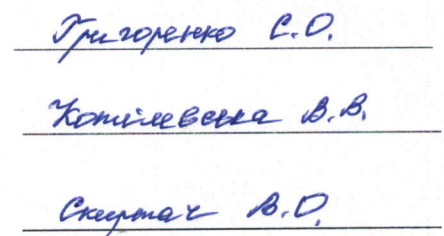 Григоренко С.О.
Котілевська В.В.
Скиртач В.О.